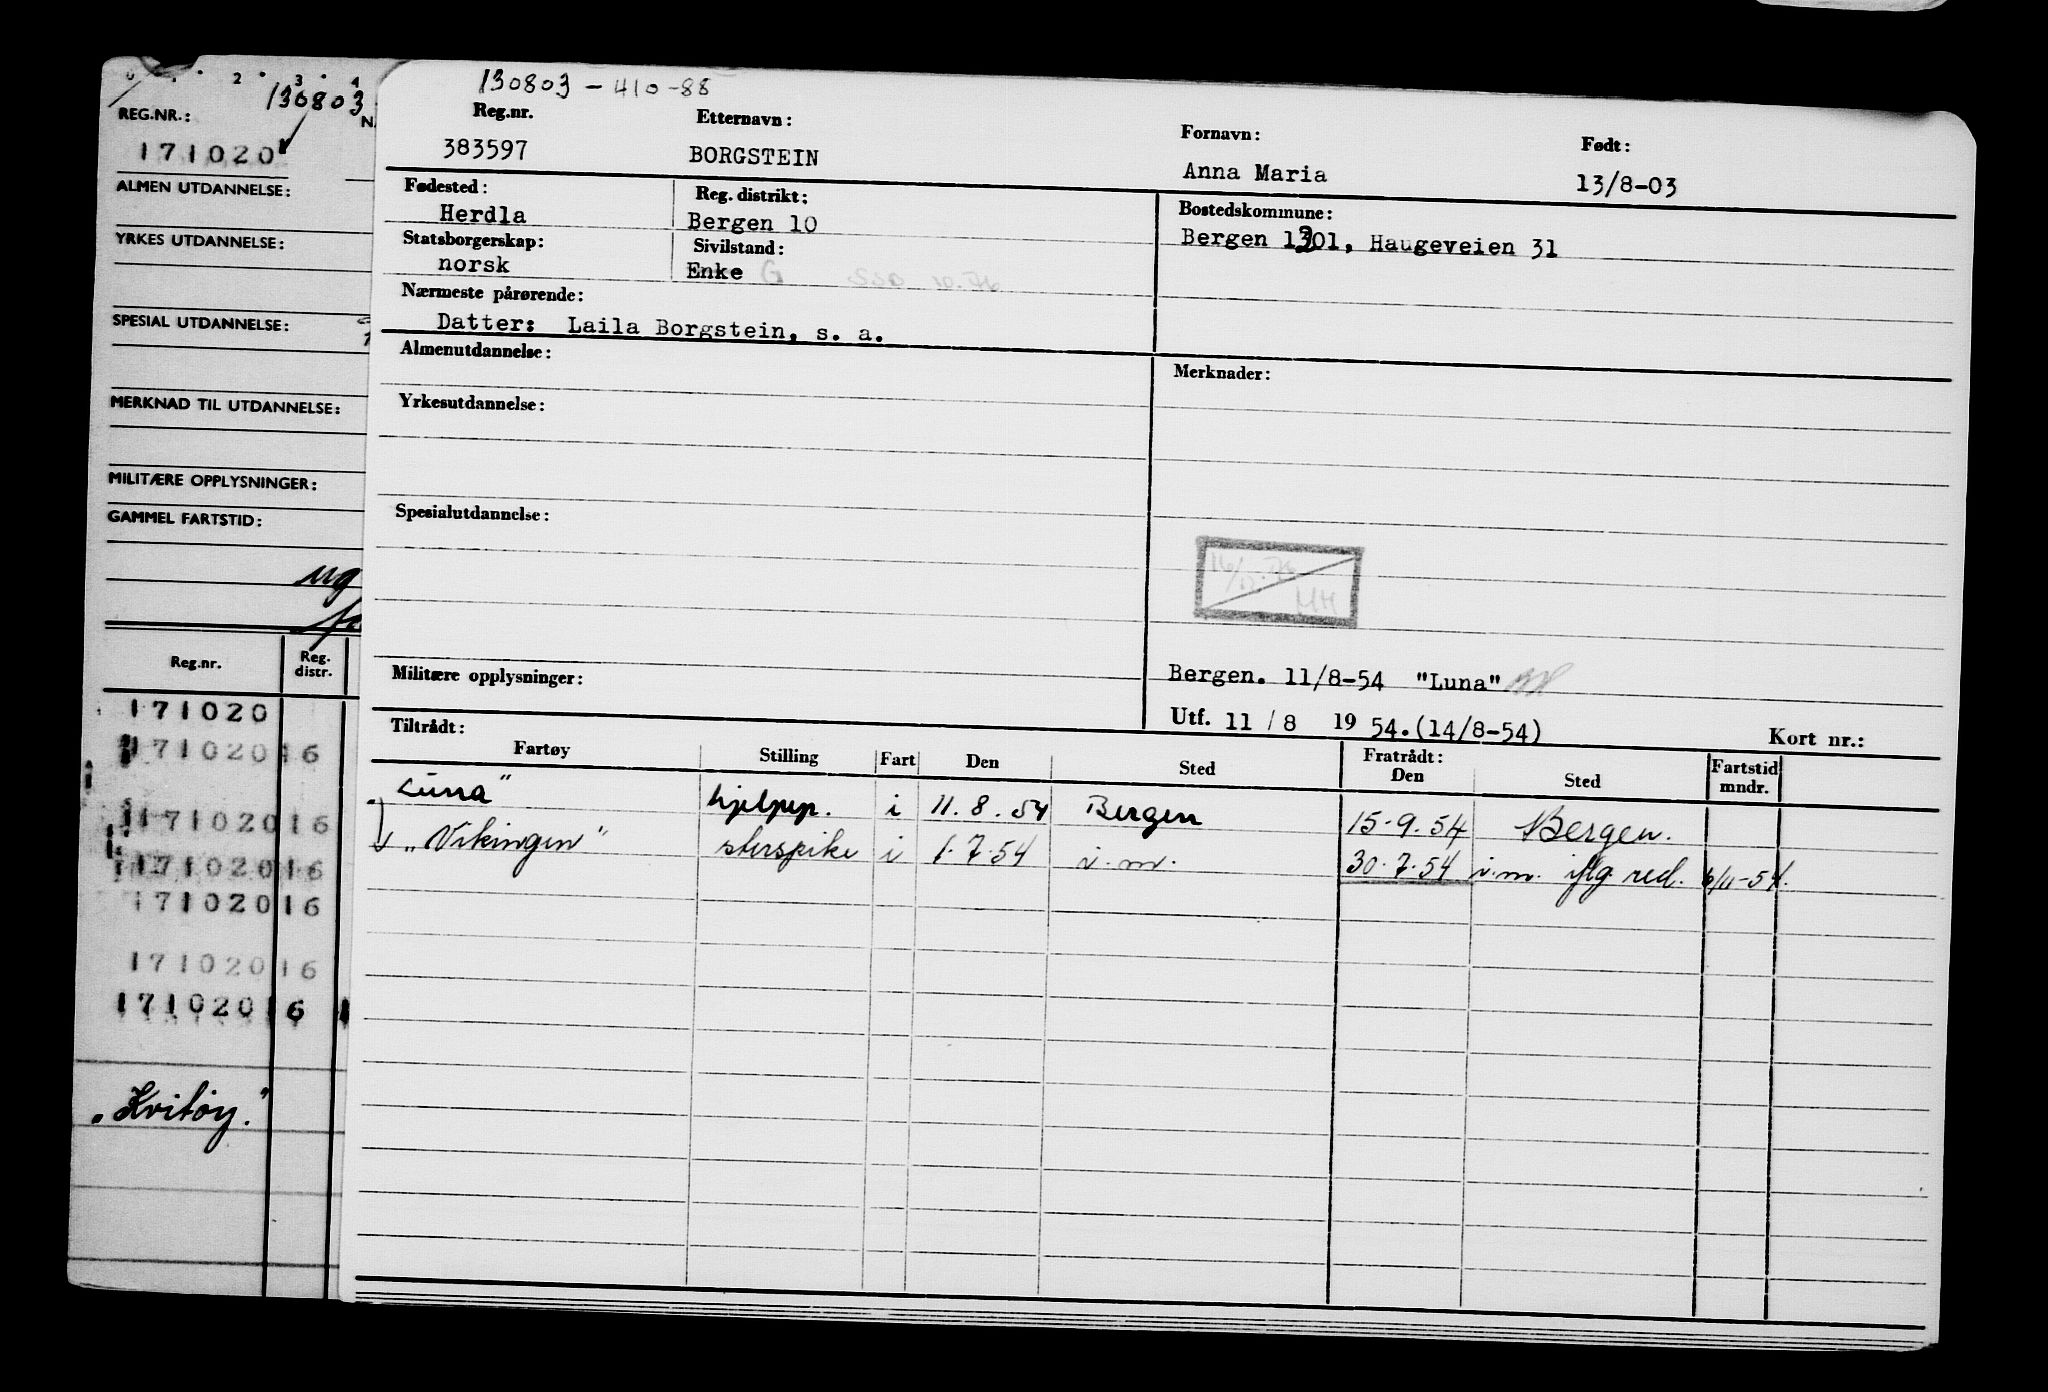 0 1 2 3 4
130803
REG.NR.:
171020
ALMEN UTDANNELSE:
YRKES UTDANNELSE:
SPESIAL UTDANNELSE:
MERKNAD TIL UTDANNELSE:
MILITÆRE OPPLYSNINGER:
GAMMEL FARTSTID:
ug
Reg.nr. Reg. distr.
171020
171020 16
171020 16
171020 16
171020 16
171020 16
171020 16
„Kvitøy."
130803 - 410 - 88
Reg.nr. Etternavn: Fornavn: Født:
383597 BORGSTEIN Anna Maria 13/8-03
Fødested: Reg. distrikt: Bostedskommune:
Herdla Bergen 10 Bergen 1301, Haugeveien 31
Statsborgerskap: Sivilstand:
norsk Enke G SSB 10.76
Nærmeste pårørende:
Datter: Laila Borgstein, s. a.
Almenutdannelse: Merknader:
Yrkesutdannelse:
Spesialutdannelse:
MH
Militære opplysninger: Bergen. 11/8-54 "Luna"
Utf. 11 / 8 19 54.(14/8-54) Kort nr.:
Tiltrådt: Fratrådt:
Fartøy Stilling Fart Den Sted Den Sted Fartstid mndr.
Luna" hjelpep. i 11.8.54 Bergen 15.9.54 Bergen.
„Vikingen" i 1.7.54 i.m. 30.7.54 i.m. iflg. red. 6/11-54.